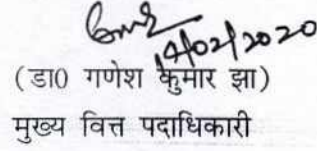 14/02/2020
(डा0 गणेश कुमार झा)
मुख्य वित्त पदाधिकारी